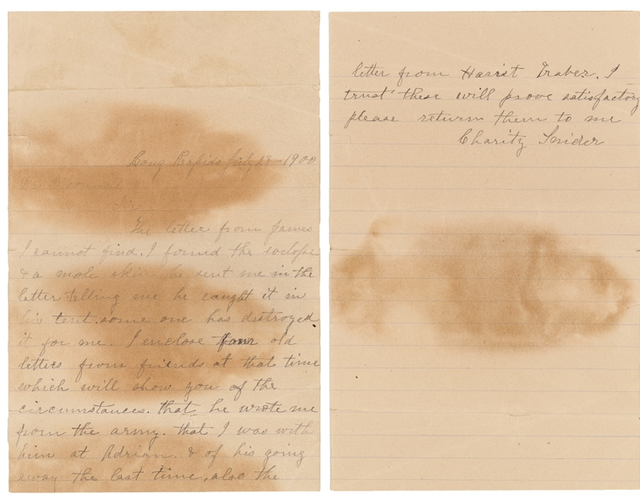 Long Rapids July 28-1900
Sir
The letter from James
I cannot find. I found the envelope
& a mole skin he sent me in the
letter telling me he caught it in
his tent. some one has destroyed
it for me. I enclose four old
letters from friends at that time
which will show you of the
circumstances. that he wrote me
from the army. that I was with
him at Adrian. & of his going
away the last time, also the
letter from Harriet Traber. I
trust these will prove satisfactory
please return them to me
Charity Snider